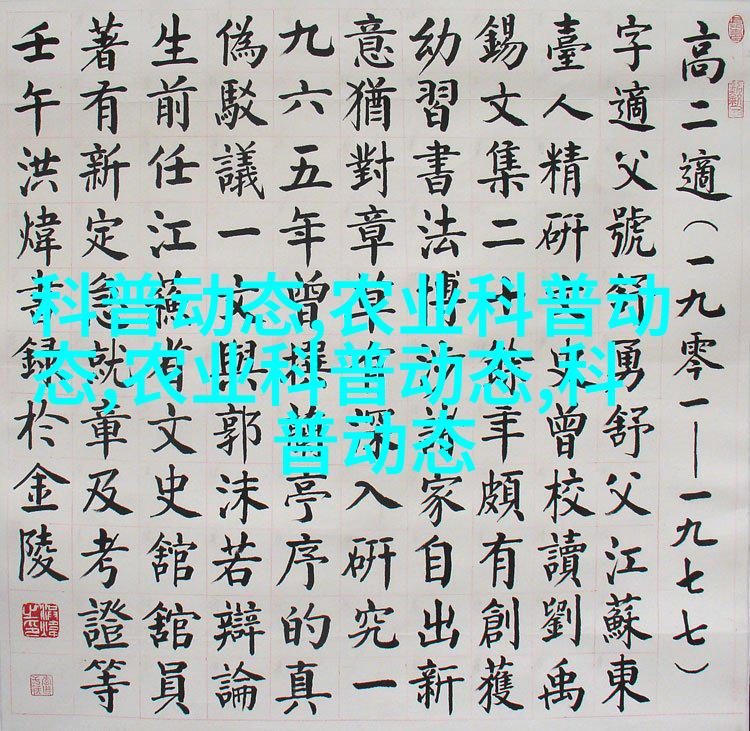 高二適（一九零一——一九七七）
字適父號舒勇舒父江蘇東
臺人精研文史曾校讀劉禹
錫文集二十餘年頗有創獲
幼習書法博訪諸家自出新
意猶對章草曾深入研究一
九六五年曾撰蘭亭序的真
偽駁議一文與郭沫若辯論
生前任江蘇省文史舘舘員
著有新定急就章及考證等
壬午洪煒書錄於金陵
科普动态,农业科普动
态,农业科普动态,科
普动态